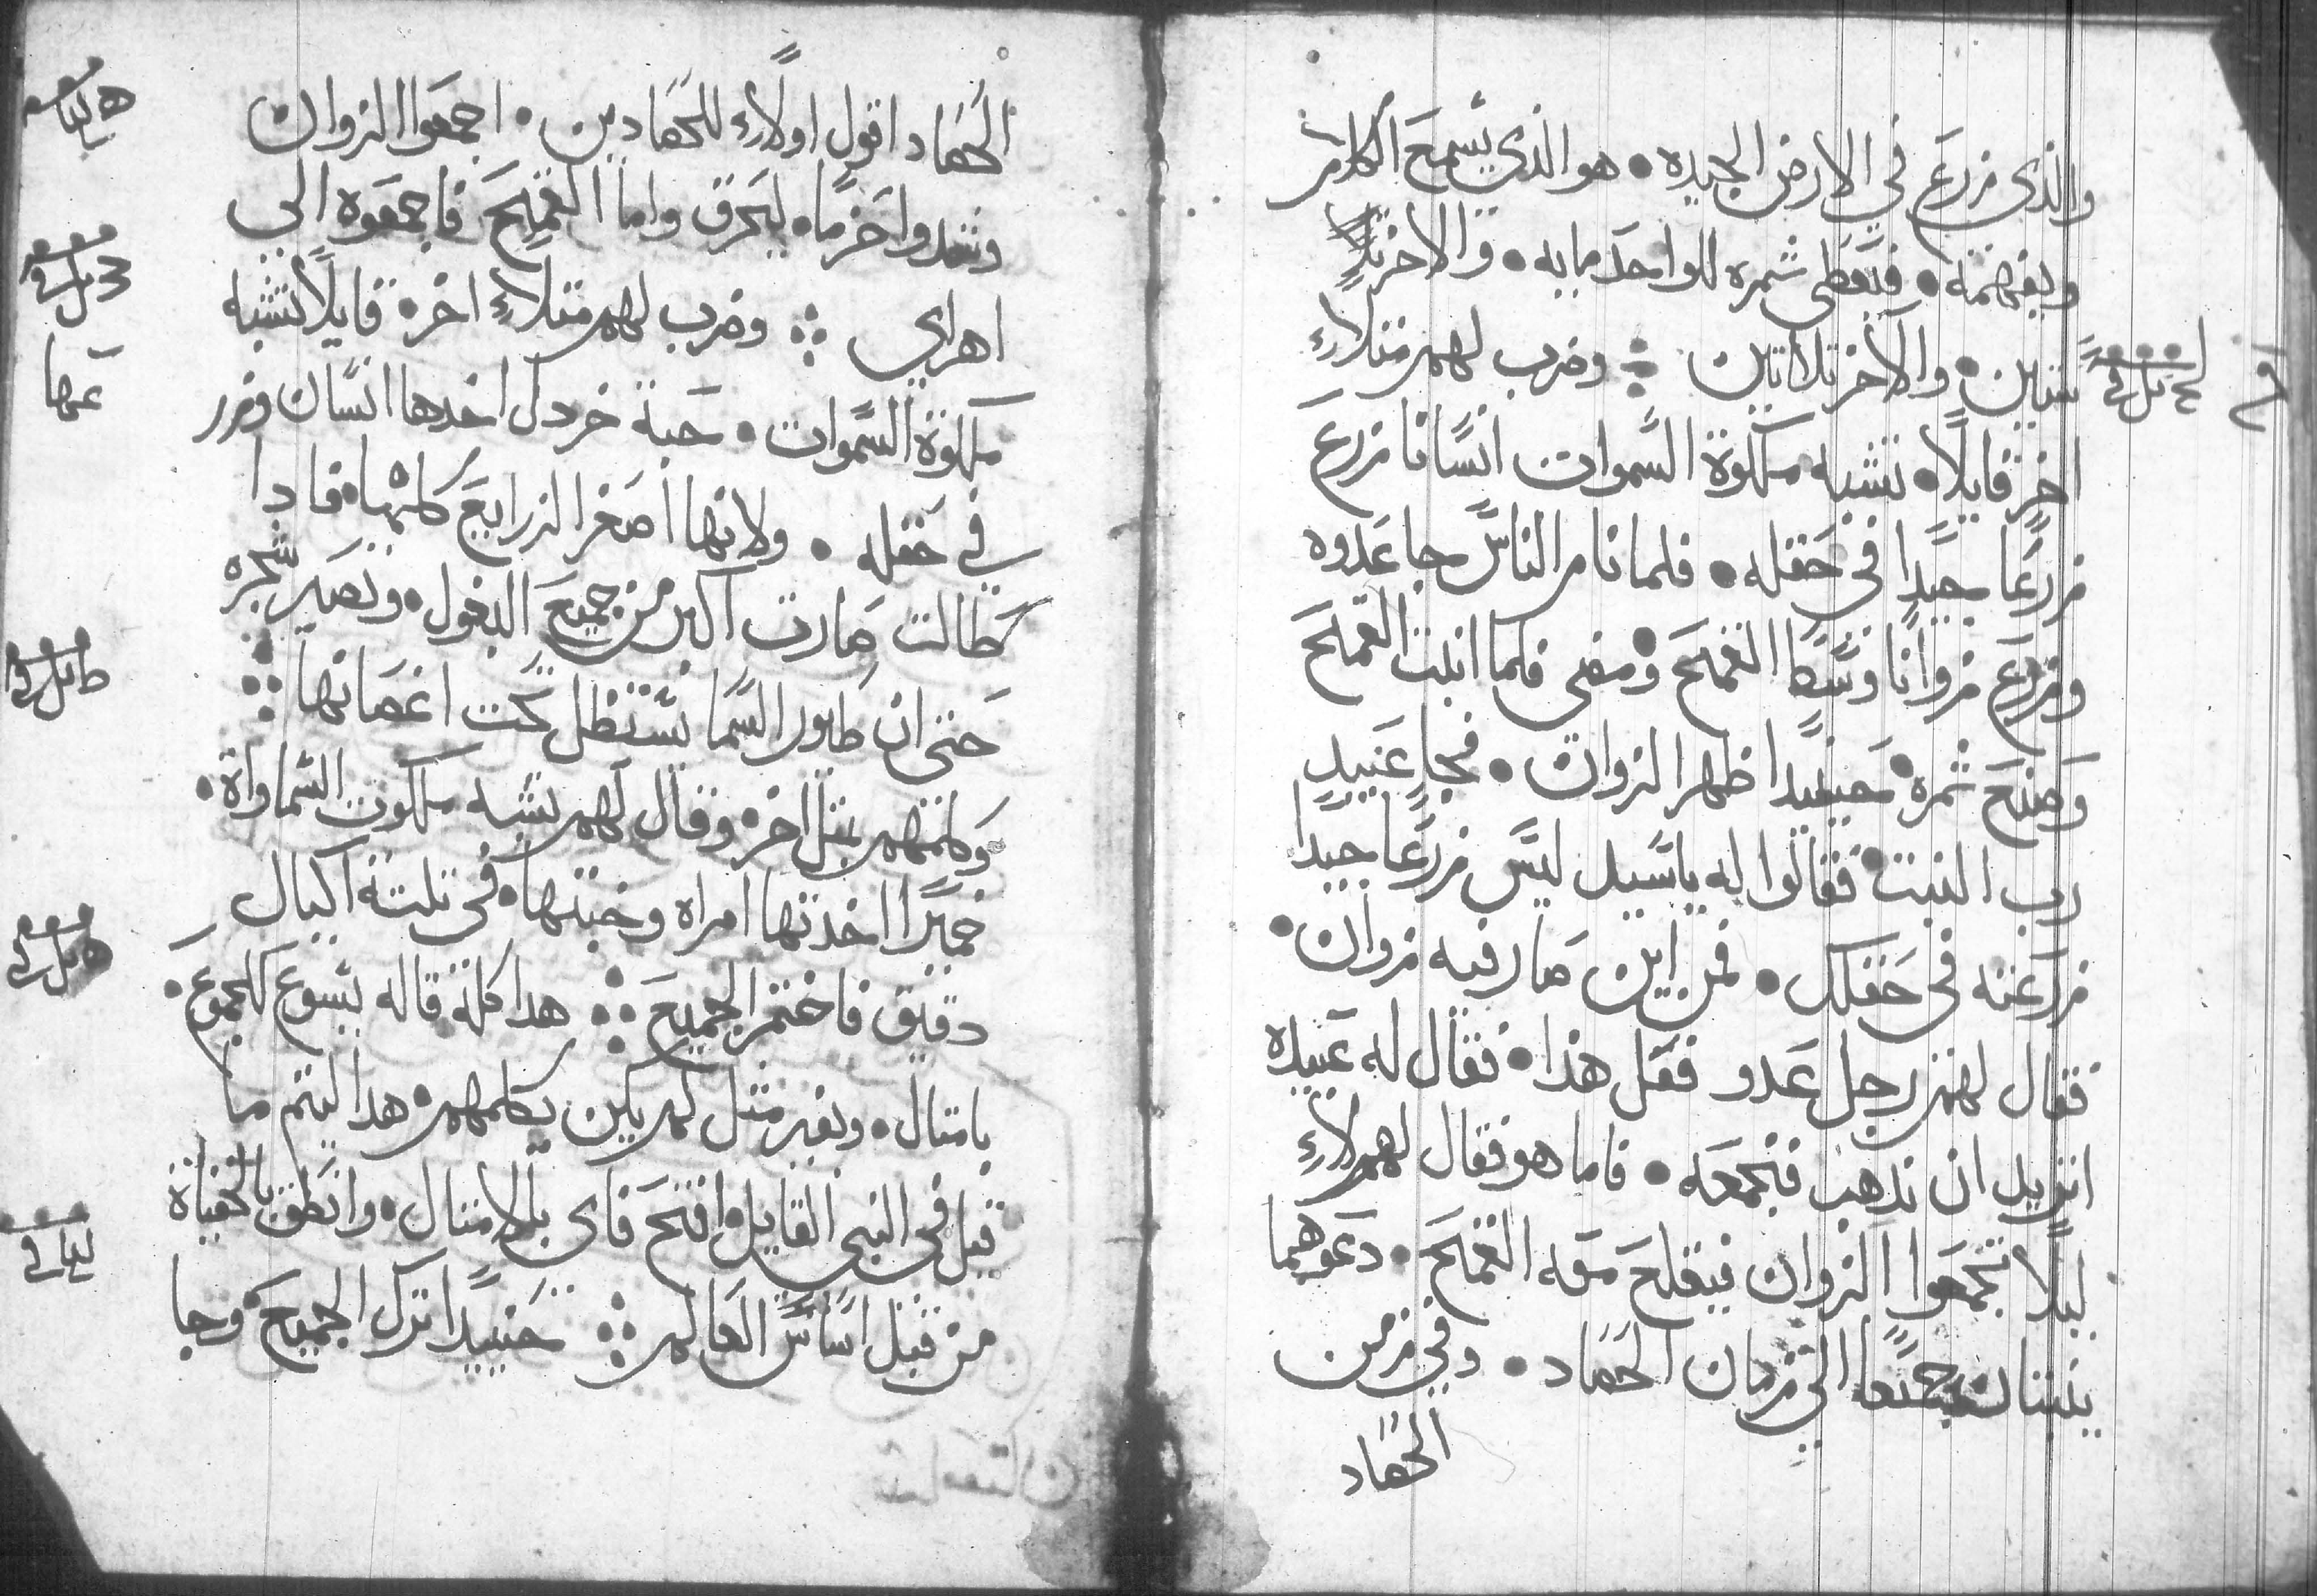 والذى زرع في الارض الجيده • هو الذي يسمع الكلام
ويفهمه • فيعطى ثمره للواحد مايه • والاخر
ستين • والاخر ثلاثين ܀ وضرب لهم مثلاً
اخر قايلاً • تشبه ملكوة السموات انسانا زرع
زرعا جيدا في حقله • فلما نام الناس جا عدوه
وزرع زوانا وسط القمح • ومضى فلما انبت القمح
وصنع ثمرة • حينيدا ظهر الزوان • فجا عبيد
رب البيت • فقالوا له ياسيد ليس زرعا جيدا
زرعته في حقلك • فمن اين صار فيه زوان •
فقال لهم رجل عدو فعل هذا • فقال له عبيده
اتريد ان نذهب فنجمعه • فاما هو فقال لهم لاء
ليلا تجمعوا الزوان فيقلع معه القمح • دعوهما
ينبتان جميعا الى زمان الحصاد • وفي زمن
الحصاد
الحصاد اقول اولاً للحصادين • اجمعوا الزوان
وشدوا حزما • ليحرق واما القمح فاجمعوه الي
اهراي ܀ وضرب لهم مثلاً اخر • قايلاً تشبه
ملكوة السموات • حبة خردل اخدها انسان وزر
في حقله • ولانها اصغر الزرايع كلها • فادا
طالت صارت اكبر من جميع البقول • وتصير شجره
حتى ان طيور السما تستظل تحت اغصانها ܀
وكلمهم بمثل اخر • وقال لهم تشبه ملكوت السماواة •
خميرا اخدتها امراه وخبتها • في تلتة اكيال
دقيق فاختمر الجميع ܀ هدا كله قاله يسوع للجموع •
بامتال • وبغير مثل لم يكن يكلمهم • هدا ليتم ما
قيل في النبي القايل • افتح فاي بالامتال • وانطق بالخفياة
من قبل اساس العالم ܀ حينيدا ترك الجميع • وجا